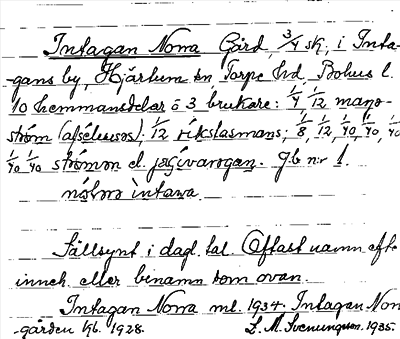 Intagan Norra Gård, 3/4 sk, i Inta-
gans by, Hjärtum sn Torpe hd, Bohus l.
10 hemmansdelar o 3 brukare: 1/4 1/12 mans-
ström (afsélusəs); 1/12 ríkslasmans; 1/8, 1/12, 1/40, 1/40,
1/40 1/40 strömən el. jægivarəgən. Jb nr 1.
nóʀra ìntawa
Sällsynt i dagl. tal. Oftast namn efte
inneh. eller binamn som ovan.
Intagan Norra ml. 1934. Intagan Nor
gården kb. 1928. L. M. Svenungsson. 1935.